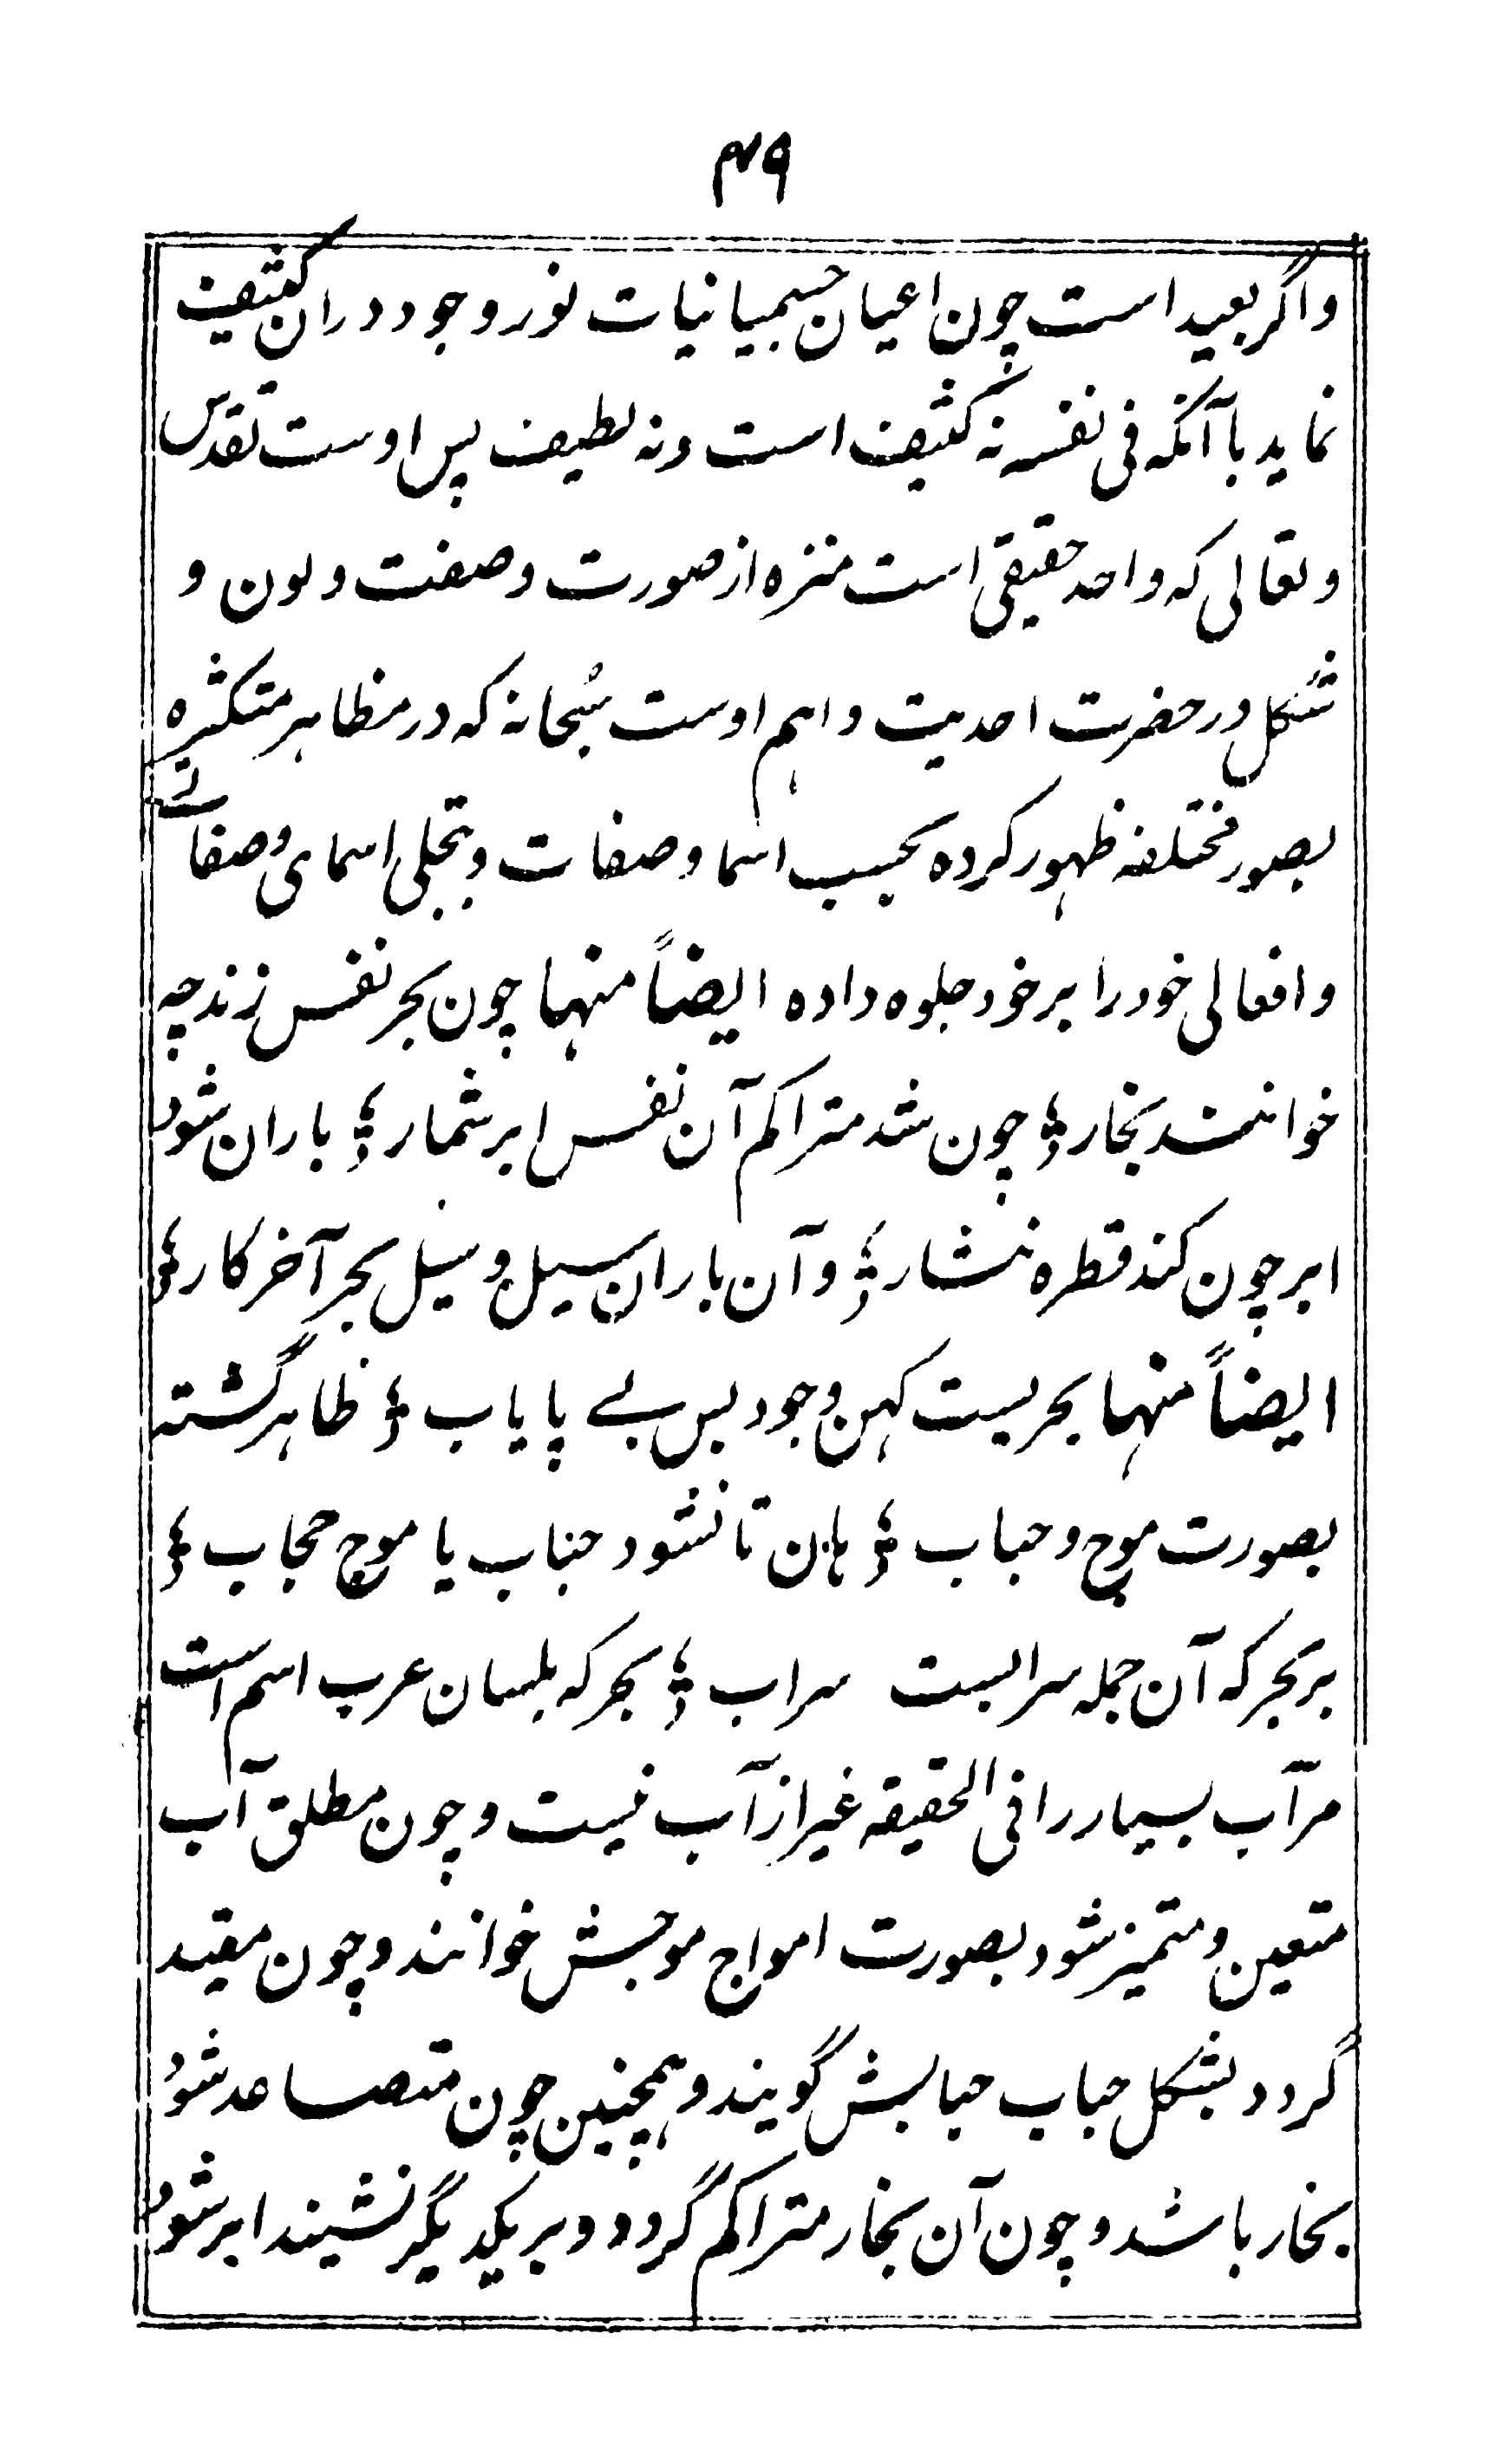 ۴۹
واگر بعید است چون اعیان جسمیانیات نور وجود دران کثیف
نماید با آنکه فی نفسه نه کثیف است ونه لطیف پس اوست تقدس
وتعالی که واحد حقیقی است منزه از صورت وصفت ولون و
شکل در حضرت احدیت واہم اوست سُبحانه که در مظاہر متکثره
بصور مختلفه ظہور کرده بحسب اسما وصفات وبتجلی اسمای وصفاتی
وافعالی خود را بر خود جلوه داده ایضاً منہا چون بحر نفس زند چه
خوانند بخار ؛ چون شد متراکم آن نفس ابر شمار ؛ باران شود
ابر چون کند قطره نثار ؛ وآن باران سیل وسیل بحر آخر کار ؛
ایضاً منہا بحریست کہن وجود بس بے پایاب ؛ ظاہر گشته
بصورت موج وحباب ؛ ہان تا نشود حباب یا موج حجاب ؛
بر بحر که آن جمله سرابست سراب ؛ بحر که بلسان عرب اسم است
مر آب بسیار را فی الحقیقه غیر از آب نیست وچون مطلق آب
متعین ومتمیز شود بصورت امواج موجش خوانند وچون مقید
گردد بشکل حباب حبابش گویند وہمچنین چون متصاعد شود
بخار باشد وچون آن بخار متراکم گردد وبر یکدیگر نشیند ابر شود